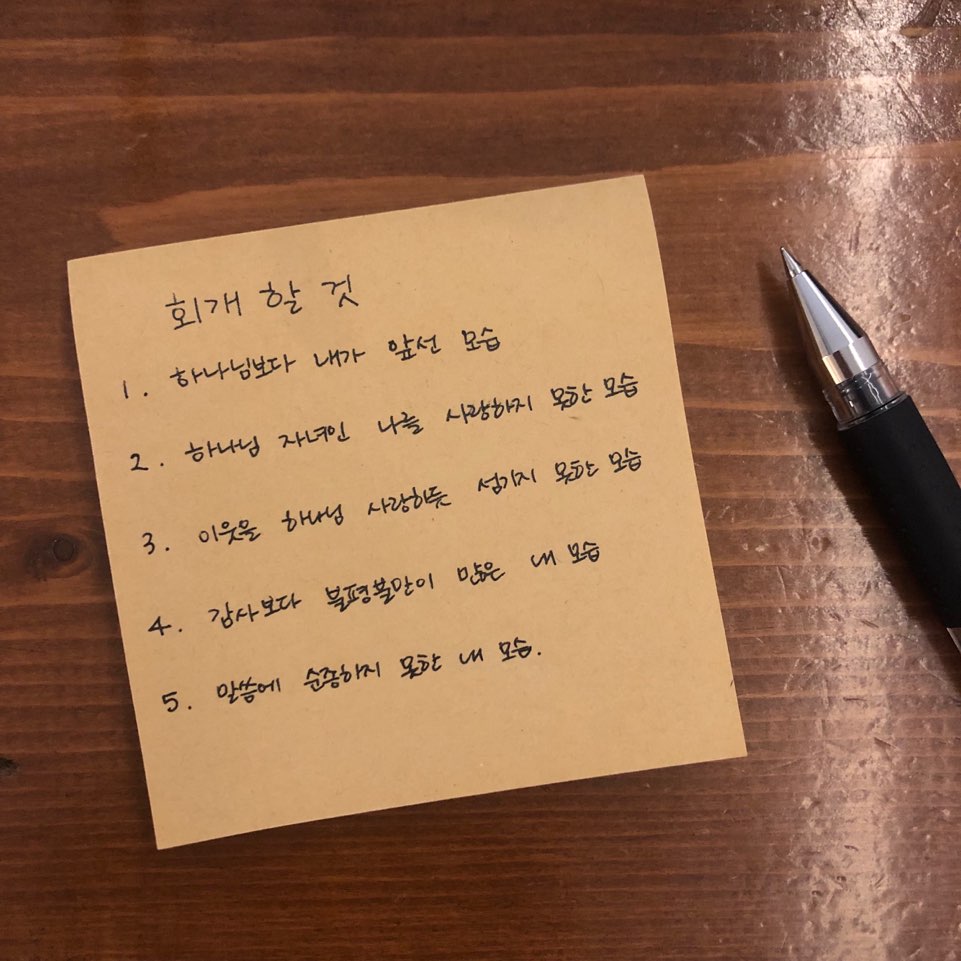 회개 할 것
1. 하나님보다 내가 앞선 모습
2. 하나님 자녀인 나를 사랑하지 못한 모습
3. 이웃을 하나님 사랑하듯 섬기지 못한 모습
4. 감사보다 불평불만이 많은 내 모습
5. 말씀에 순종하지 못한 내 모습.